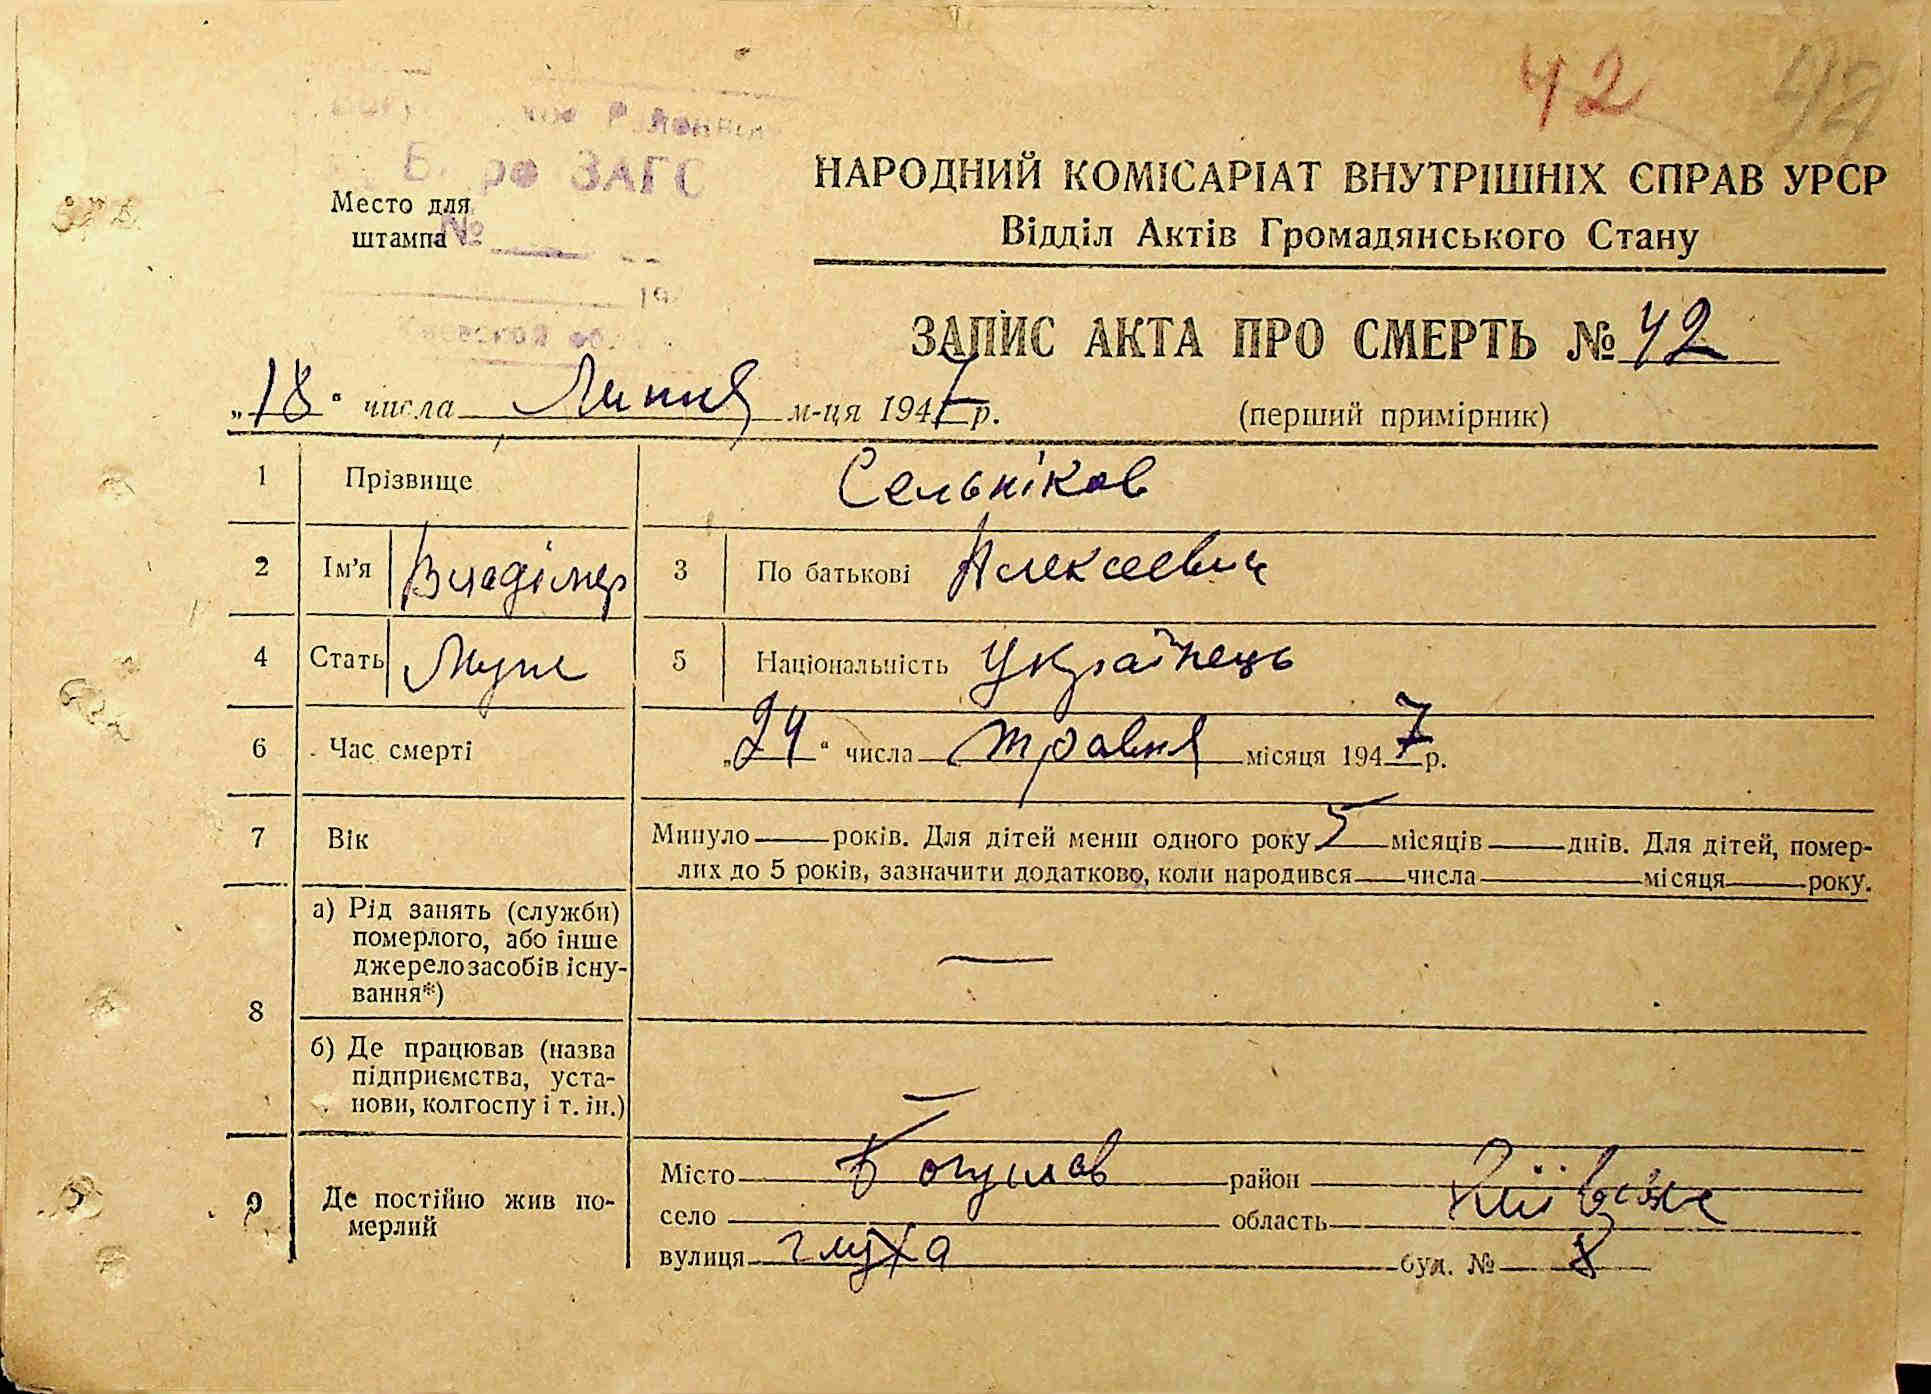 42 42
Бюро ЗАГС
НАРОДНИЙ КОМІСАРІАТ ВНУТРІШНІХ СПРАВ УРСР
Место для
штампа
№
Відділ Актів Громадянського Стану
19
ЗАПИС АКТА ПРО СМЕРТЬ № 42
„18“ числа Липня м-ця 1947 р. (перший примірник)
1 Прізвище Сельніков
2 Ім'я Владімер 3 По батькові Алексеевич
4 Стать Муж 5 Національність Українець
6 Час смерті „24“ числа травня місяця 1947 р.
7 Вік Минуло — років. Для дітей менш одного року 5 місяців — днів. Для дітей, помер-
лих до 5 років, зазначити додатково, коли народився — числа — місяця — року.
8 а) Рід занять (служби)
померлого, або інше
джерело засобів існу-
вання*) —
б) Де працював (назва
підприємства, уста-
нови, колгоспу і т. ін.) —
9 Де постійно жив по-
мерлий
Місто Богуслав район
село область Київська
вулиця глуха буд. № 8